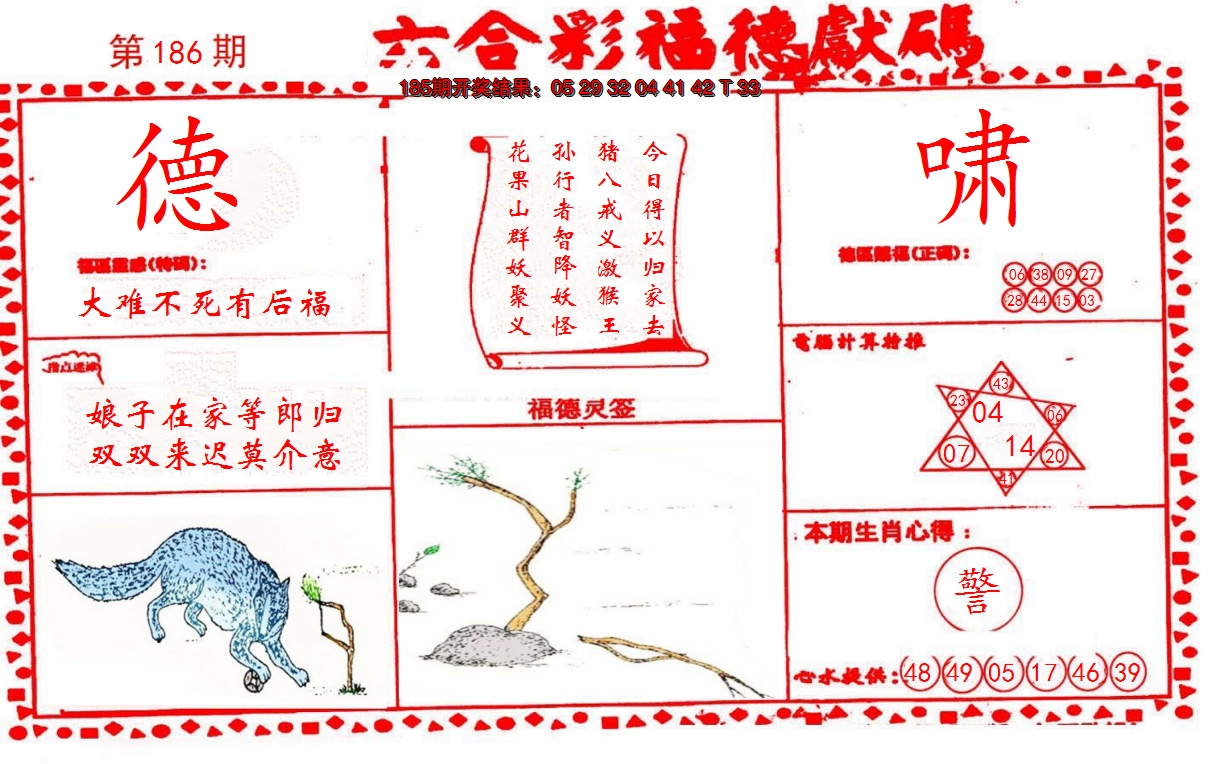 第186期
六合彩福德獻碼
185期开奖结果：05 29 32 04 41 42 T 33
德
福區靈感(特碼)：
大难不死有后福
指点迷津
娘子在家等郎归
双双来迟莫介意
今日得以归家去
猪八戒义激猴王
孙行者智降妖怪
花果山群妖聚义
福德灵签
啸
德區賜福(正碼)：
06 38 09 27
28 44 15 03
電腦計算檢推
43
23 04 06
07 14 20
41
本期生肖心得：
警
心水提供：48 49 05 17 46 39